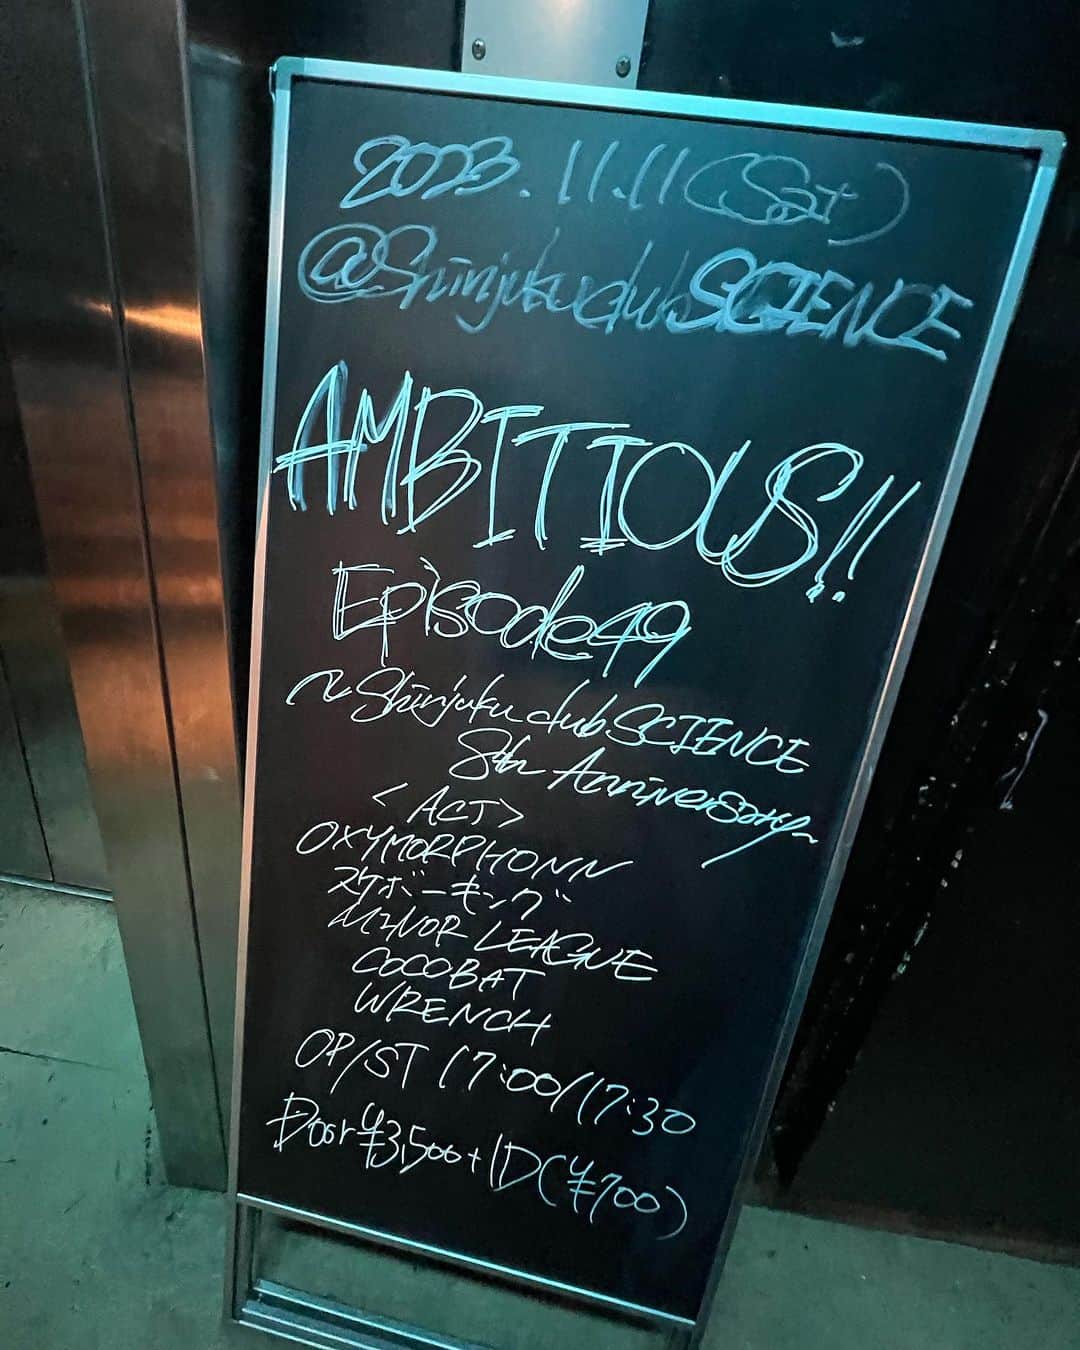 2023.11.11(Sat)
@Shinjuku club SCIENCE
AMBITIOUS!!
Episode49
~Shinjuku club SCIENCE
8th Anniversary~
<ACT>
OXYMORPHONN
スケボーキング
MINOR LEAGUE
COCOBAT
WRENCH
OP/ST 17:00/17:30
Door¥3,500+1D(¥700)